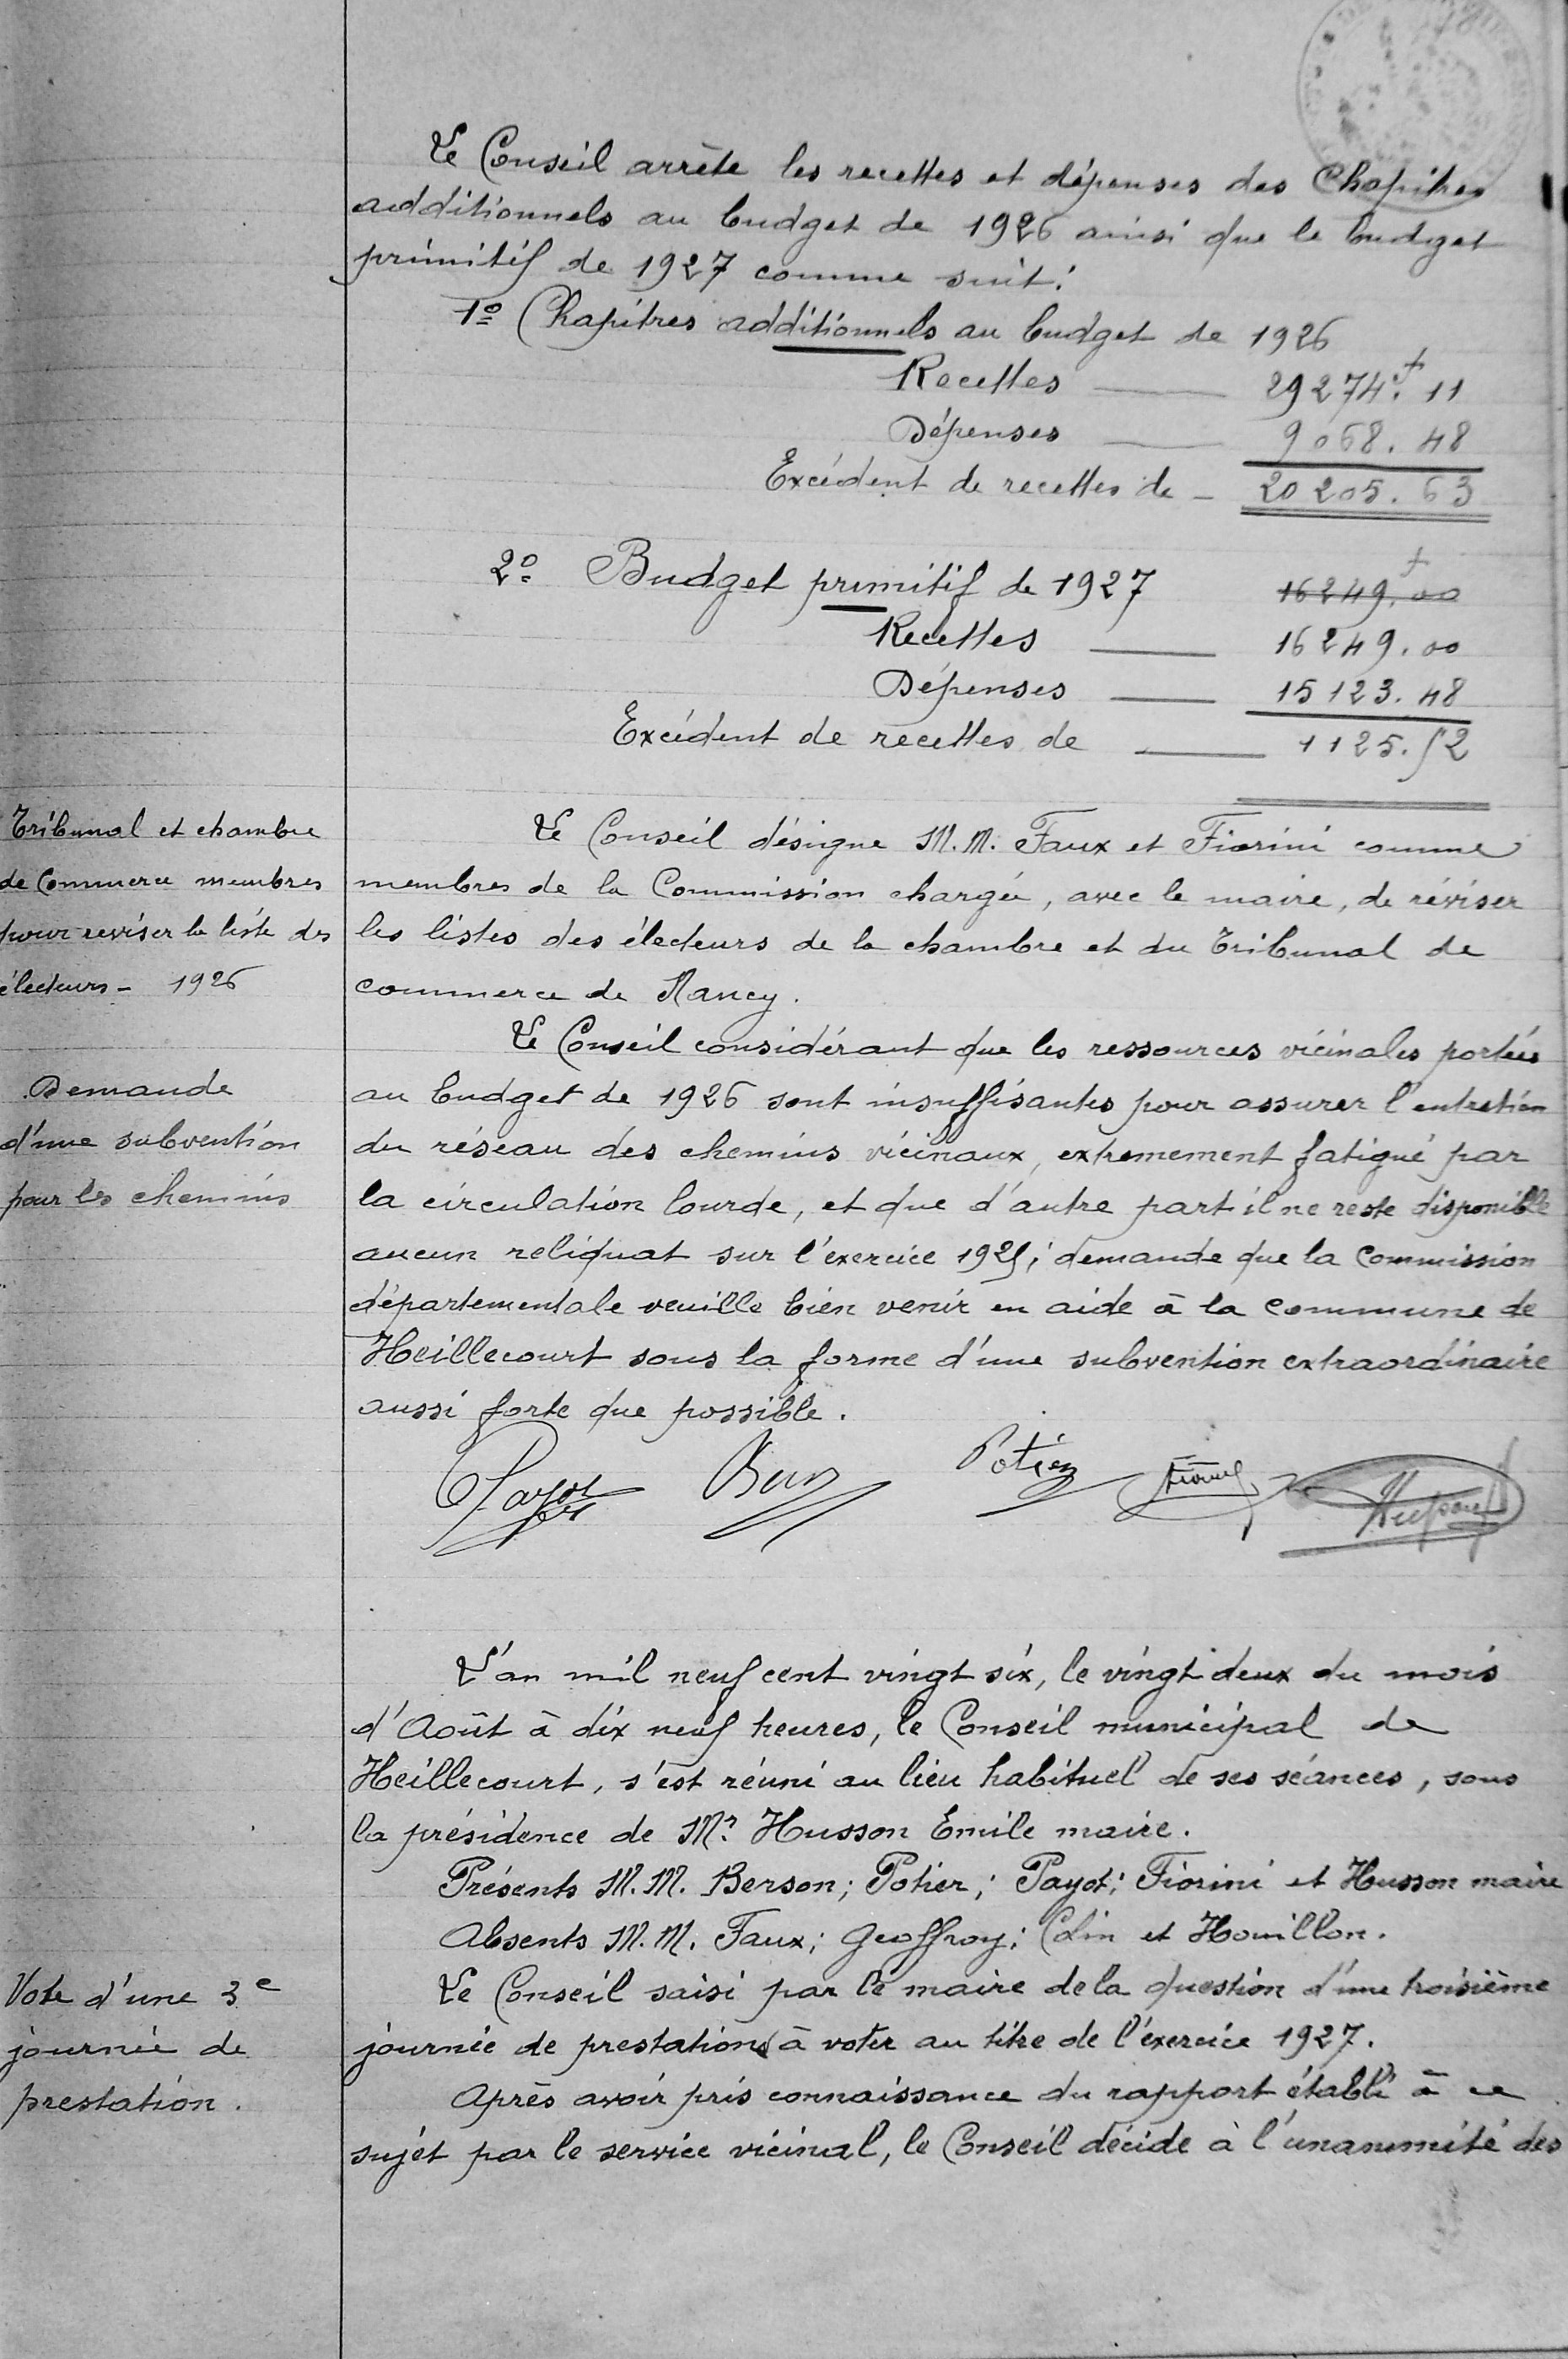 Le Conseil arrête les recettes et dépenses des Chapitres
additionnels au budget de 1926 ainsi que le budget
primitif de 1927 comme suit:
1º Chapitres additionnels au budget de 1926
Recettes — 29274.f 11
Dépenses — 9068. 48
Excédent de recettes de — 20205. 63
2º Budget primitif de 1927 16249.f 00
Recettes — 16249. 00
Dépenses — 15123. 48
Excédent de recettes de — 1125. 52
Tribunal et chambre
de Commerce membres
pour reviser la liste des
électeurs - 1926
Le Conseil désigne M.M. Faux et Fiorini comme
membres de la Commission chargée, avec le maire, de réviser
les listes des électeurs de la chambre et du Tribunal de
commerce de Nancy.
Demande
d'une subvention
pour les chemins
Le Conseil considérant que les ressources vicinales portées
au budget de 1926 sont insuffisantes pour assurer l'entretien
du réseau des chemins vicinaux, extremement fatigué par
la circulation lourde, et que d'autre part il ne reste disponible
aucun reliquat sur l'exercice 1925; demande que la Commission
départementale veuille bien venir en aide à la commune de
Heillecourt sous la forme d'une subvention extraordinaire
aussi forte que possible.
Payot Potier
L'an mil neuf cent vingt six, le vingt deux du mois
d'Août à dix neuf heures, le Conseil municipal de
Heillecourt, s'est réuni au lieu habituel de ses séances, sous
la présidence de Mr. Husson Emile maire.
Présents M.M. Berson; Potier; Payot; Fiorini et Husson maire
Absents M.M. Faux; Geoffroy; Colin et Houillon.
Vote d'une 3e
journée de
prestation.
Le Conseil saisi par le maire de la question d'une troisième
journée de prestation à voter au titre de l'éxercice 1927.
Après avoir pris connaissance du rapport établi à ce
sujet par le service vicinal, le Conseil décide à l'unanimité des